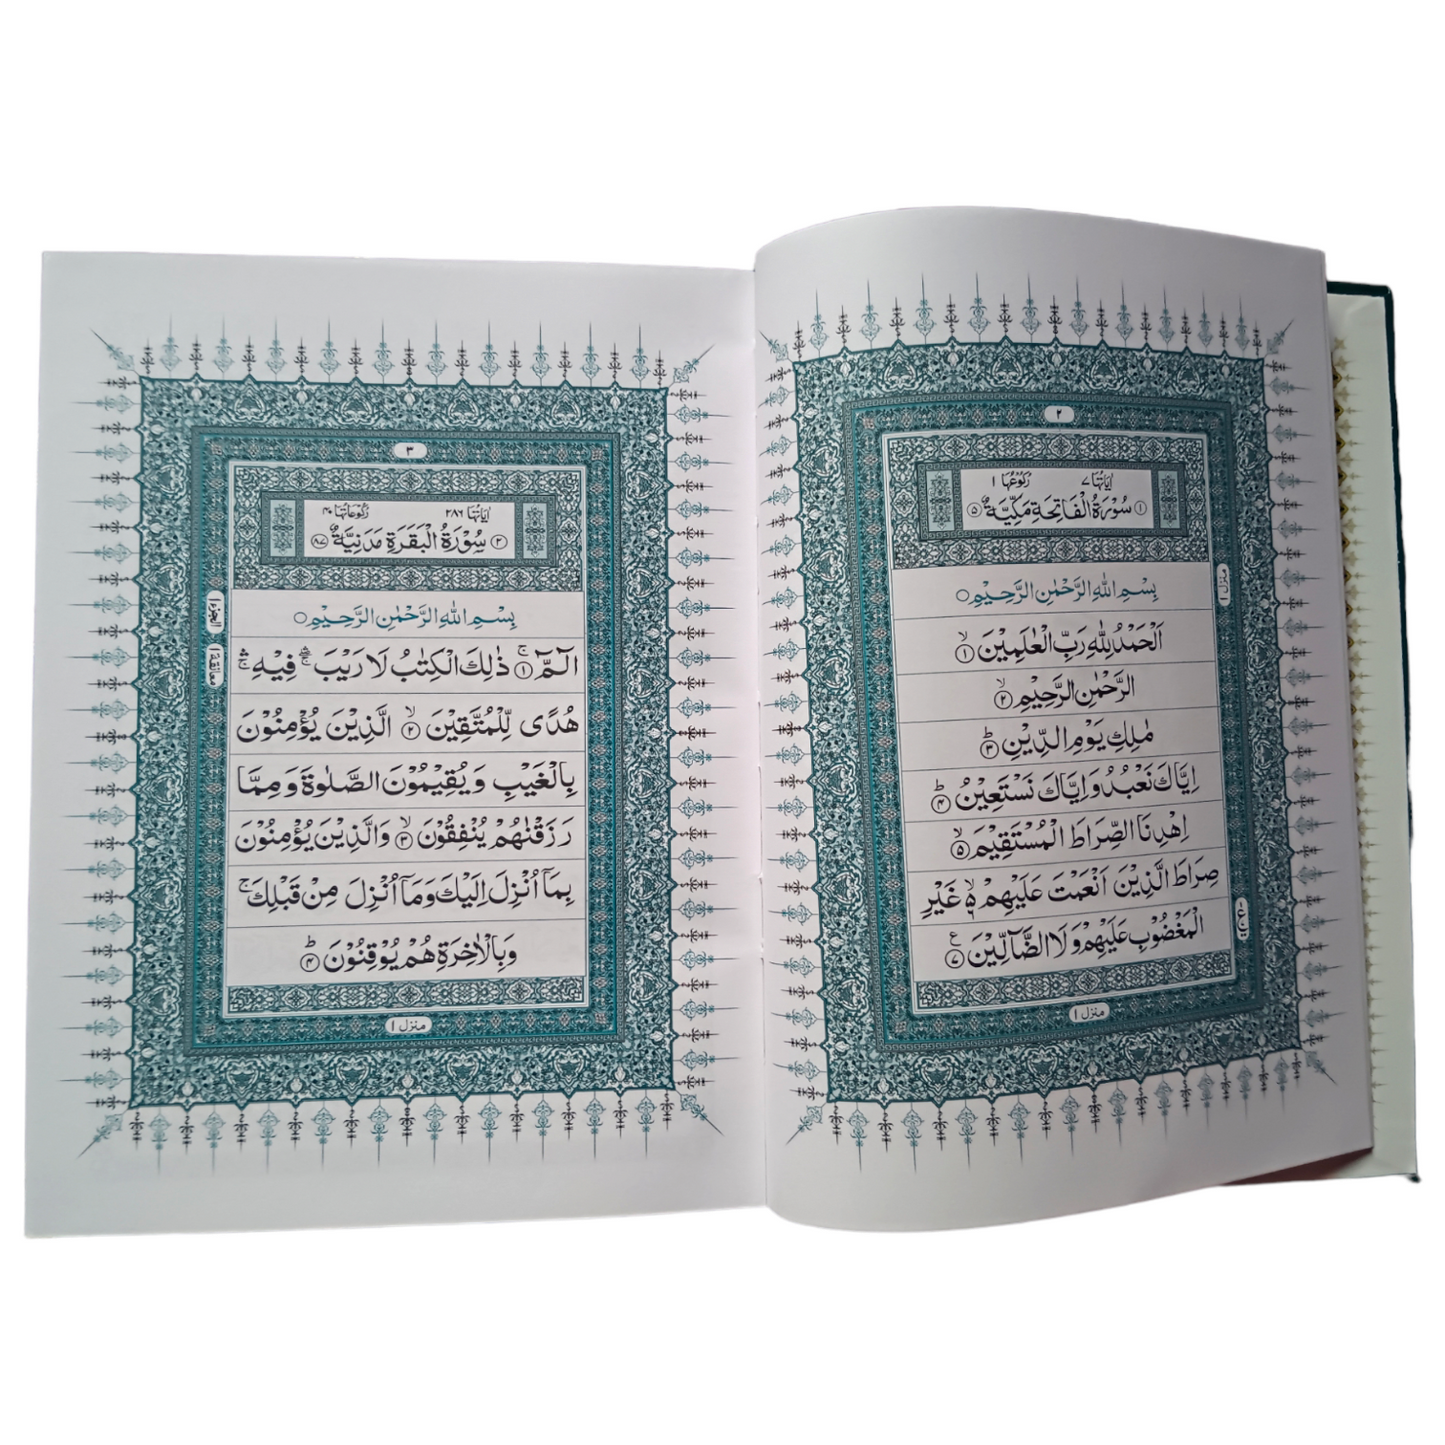 ٢
اٰيَاتُهَا ٧ رُكُوْعُهَا ١
١ سُوْرَةُ الْفَاتِحَةِ مَكِّيَّةٌ ٥
بِسْمِ اللّٰهِ الرَّحْمٰنِ الرَّحِيْمِ
اَلْحَمْدُ لِلّٰهِ رَبِّ الْعٰلَمِيْنَ ۙ ١
الرَّحْمٰنِ الرَّحِيْمِ ۙ ٢
مٰلِكِ يَوْمِ الدِّيْنِ ؕ ٣
اِيَّاكَ نَعْبُدُ وَاِيَّاكَ نَسْتَعِيْنُ ؕ ۴
اِهْدِنَا الصِّرَاطَ الْمُسْتَقِيْمَ ۙ ۵
صِرَاطَ الَّذِيْنَ اَنْعَمْتَ عَلَيْهِمْ ۙ ۬ ٦ غَيْرِ
الْمَغْضُوْبِ عَلَيْهِمْ وَلَا الضَّآلِّيْنَ ٧ ع
منزل ١
منزل ١
٣
اٰيَاتُهَا ٢٨٦ رُكُوْعَاتُهَا ۴٠
٢ سُوْرَةُ الْبَقَرَةِ مَدَنِيَّةٌ ٨٧
بِسْمِ اللّٰهِ الرَّحْمٰنِ الرَّحِيْمِ
الٓمّٓ ۚ ١ ذٰلِكَ الْكِتٰبُ لَا رَيْبَ ۛ ۖ فِيْهِ ۛ ۚ
هُدًى لِّلْمُتَّقِيْنَ ۙ ٢ الَّذِيْنَ يُؤْمِنُوْنَ
بِالْغَيْبِ وَيُقِيْمُوْنَ الصَّلٰوةَ وَمِمَّا
رَزَقْنٰهُمْ يُنْفِقُوْنَ ۙ ٣ وَالَّذِيْنَ يُؤْمِنُوْنَ
بِمَآ اُنْزِلَ اِلَيْكَ وَمَآ اُنْزِلَ مِنْ قَبْلِكَ ۚ
وَبِالْاٰخِرَةِ هُمْ يُوْقِنُوْنَ ؕ ۴
الجزء ١
معانقة ١
منزل ١